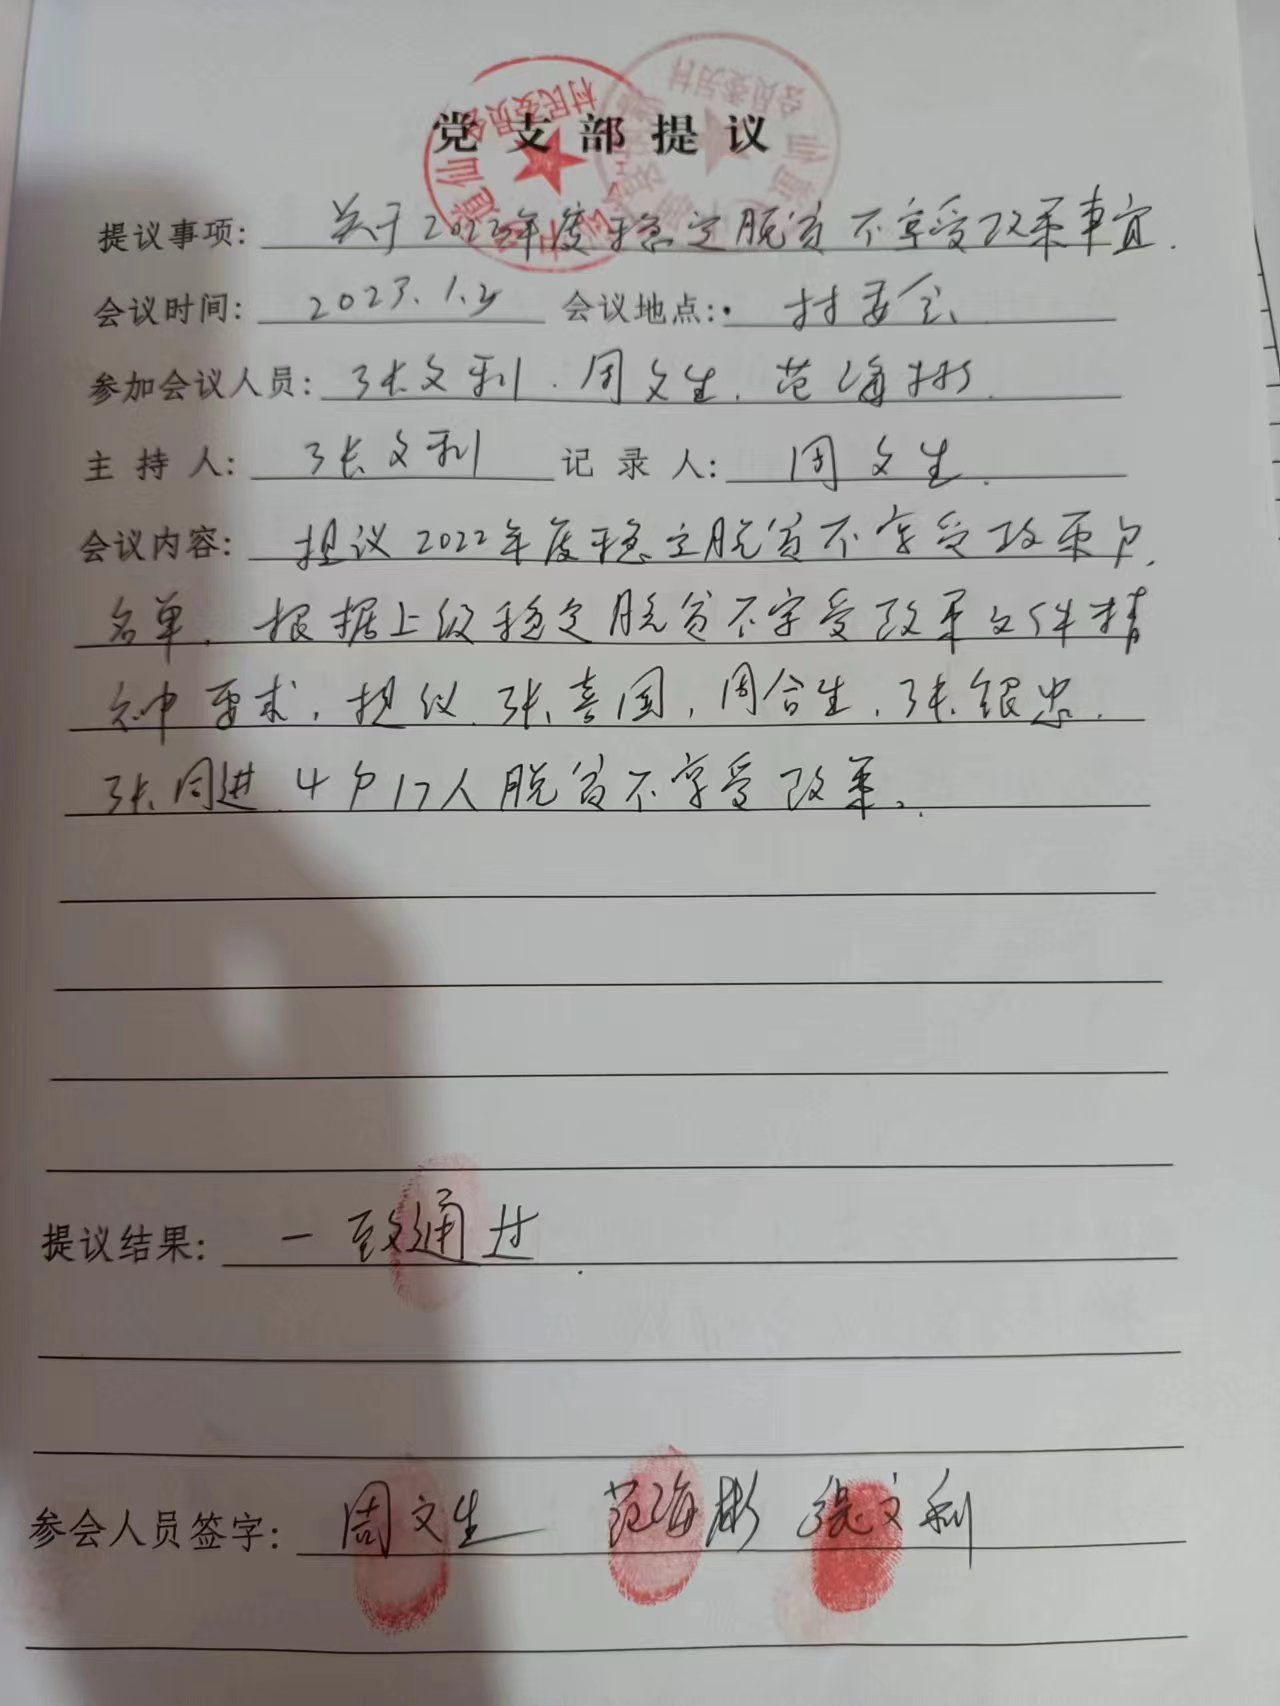 村民委员会
村民委员会
党支部提议
提议事项: 关于2022年度稳定脱贫不享受政策事宜.
会议时间: 2023.1.3 会议地点: 村委会
参加会议人员: 张文利. 周文生. 范海彬.
主持人: 张文利 记录人: 周文生.
会议内容: 提议2022年度稳定脱贫不享受政策户
名单, 根据上级稳定脱贫不享受政策文件精
神要求, 提议 张喜国, 周合生, 张银忠,
张同进 4户17人脱贫不享受政策。
提议结果: 一致通过
参会人员签字: 周文生 范海彬 张文利